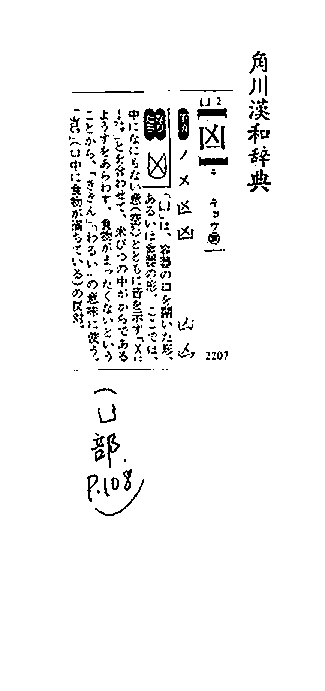 角川漢和辞典
凵2
凶
キョウ
2207
ノ メ 区 凶
なりたち
「凵」は、容器の口を開いた形、
あるいは倉器の形。ここでは、
中になにもない意(空)とともに音を示す「乂」
とを合わせて、米びつの中がからである
ようすをあらわす。食物がまったくないという
ことから、「ききん」「わるい」の意味に使う。
(口中に食物が満ちている)の反対。
(凵
部.
P.108)